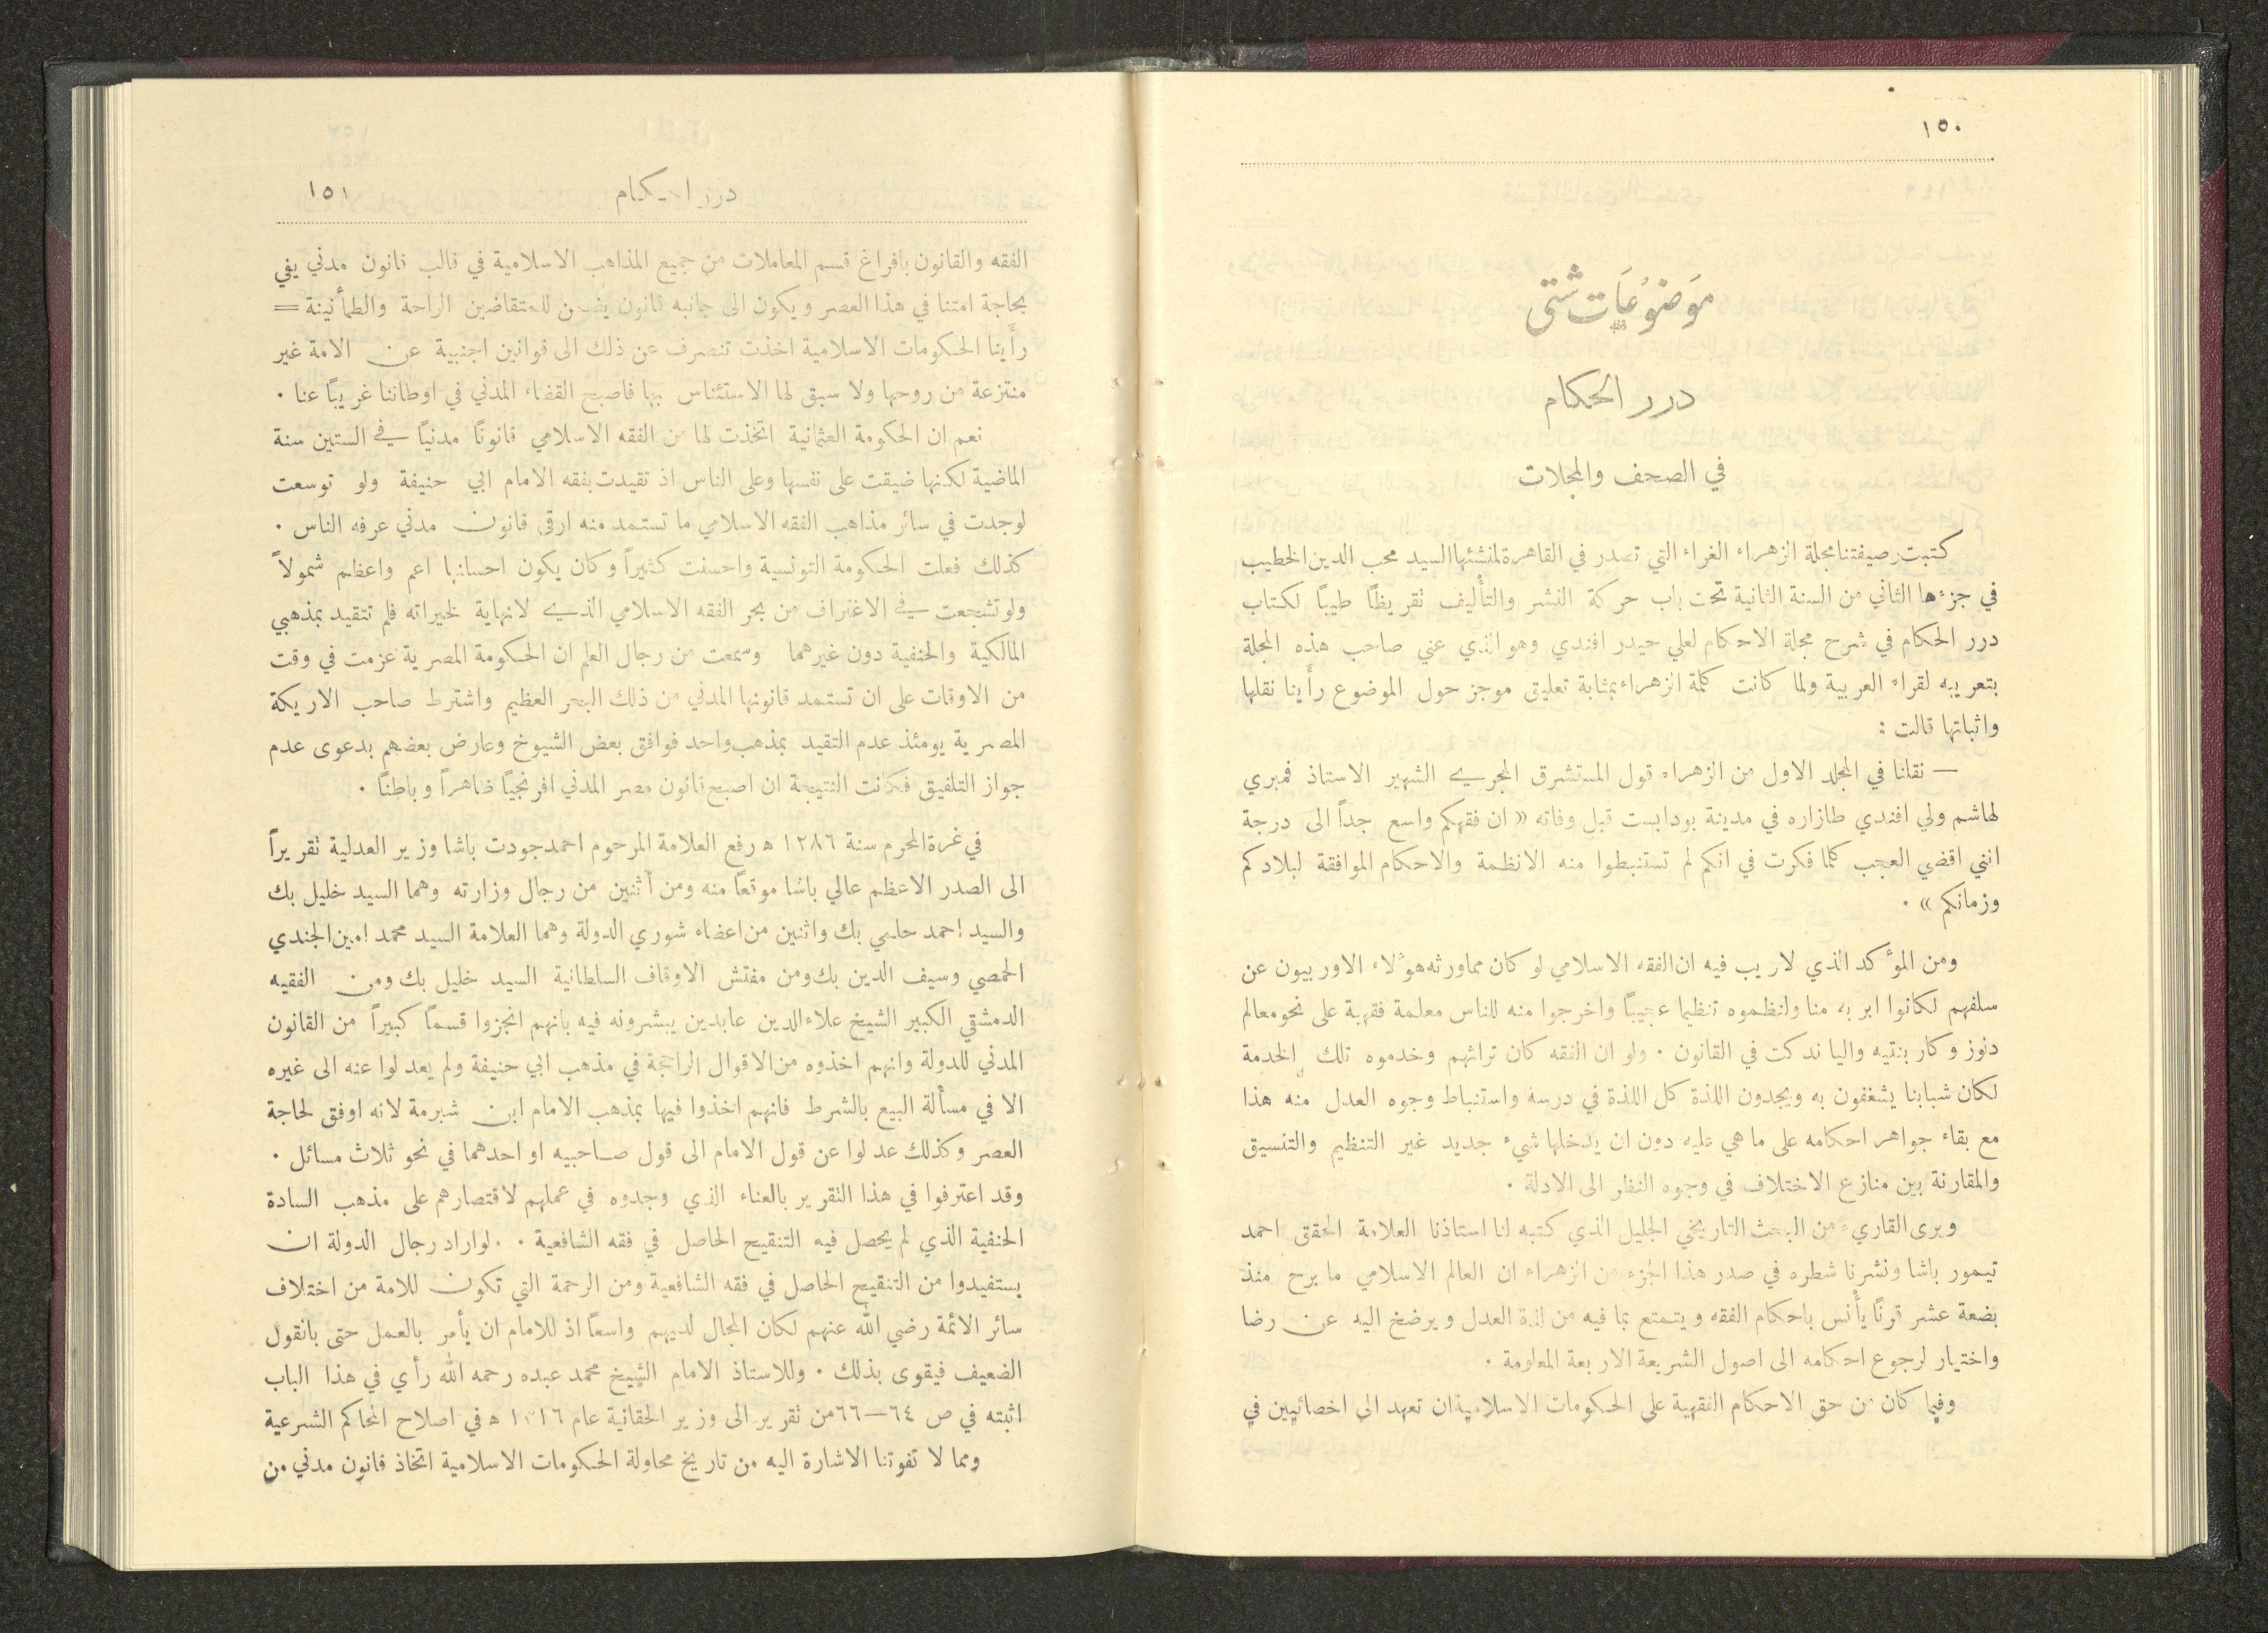 ١٥٠
مَوَضُوْعَات شتى
درر الحكام
في الصحف والمجلات
كتبت رصيفتنا مجلة الزهراء الغراء التي تصدر في القاهرة لمنشئها السيد محب الدين الخطيب
في جزءها الثاني من السنة الثانية تحت باب حركة النشر والتأليف تقريظًا طيبًا لكتاب
درر الحكام في شرح مجلة الاحكام لعلي حيدر افندي وهو الذي عني صاحب هذه المجلة
بتعريبه لقراء العربية ولما كانت كلمة الزهراء بمثابة تعليق موجز حول الموضوع رأينا نقلها
واثباتها قالت :
— نقلنا في المجلد الاول من الزهراء قول المستشرق المجري الشهير الاستاذ فمبري
لهاشم ولي افندي طازاره في مدينة بودابست قبل وفاته « ان فقهكم واسع جداً الى درجة
انني اقضي العجب كلما فكرت في انكم لم تستنبطوا منه الانظمة والاحكام الموافقة لبلادكم
وزمانكم » ·
ومن المؤكد الذي لاريب فيه ان الفقه الاسلامي لو كان مما ورثه هؤلاء الاوربيون عن
سلفهم لكانوا ابر به منا ولنظموه تنظيما عجيبًا واخرجوا منه للناس معلمة فقهية على نحو معالم
دلوز وكاربنتيه واليا ندكت في القانون · ولو ان الفقه كان تراثهم وخدموه تلك الخدمة
لكان شبابنا يشغفون به ويجدون اللذة كل اللذة في درسه واستنباط وجوه العدل منه هذا
مع بقاء جواهر احكامه على ما هي عليه دون ان يدخلها شيء جديد غير التنظيم والتنسيق
والمقارنة بين منازع الاختلاف في وجوه النظر الى الادلة ·
ويرى القاريء من البحث التاريخي الجليل الذي كتبه لنا استاذنا العلامة المحقق احمد
تيمور باشا ونشرنا شطره في صدر هذا الجزء من الزهراء ان العالم الاسلامي ما برح منذ
بضعة عشر قرنًا يأنس باحكام الفقه ويتمتع بما فيه من لذة العدل ويرضخ اليه عن رضا
واختيار لرجوع احكامه الى اصول الشريعة الاربعة المعلومة ·
وفيما كان من حق الاحكام الفقهية على الحكومات الاسلامية ان تعهد الى اخصائيين في
درر الحكام
١٥١
الفقه والقانون بافراغ قسم المعاملات من جميع المذاهب الاسلامية في قالب قانون مدني يفي
بحاجة امتنا في هذا العصر ويكون الى جانبه قانون يضمن للمتقاضين الراحة والطمأنينة =
رأينا الحكومات الاسلامية اخذت تنصرف عن ذلك الى قوانين اجنبية عن الامة غير
منتزعة من روحها ولا سبق لها الاستئناس بها فاصبح القضاء المدني في اوطاننا غريبًا عنا ·
نعم ان الحكومة العثمانية اتخذت لها من الفقه الاسلامي قانونًا مدنيًا في الستين سنة
الماضية لكنها ضيقت على نفسها وعلى الناس اذ تقيدت بفقه الامام ابي حنيفة ولو توسعت
لوجدت في سائر مذاهب الفقه الاسلامي ما تستمد منه ارقى قانون مدني عرفه الناس ·
كذلك فعلت الحكومة التونسية واحسنت كثيراً وكان يكون احسانها اعم واعظم شمولاً
ولو تشجعت في الاغتراف من بحر الفقه الاسلامي الذي لانهاية لخيراته فلم تتقيد بمذهبي
المالكية والحنفية دون غيرهما وسمعت من رجال العلم ان الحكومة المصرية عزمت في وقت
من الاوقات على ان تستمد قانونها المدني من ذلك البحر العظيم واشترط صاحب الاريكة
المصرية يومئذ عدم التقيد بمذهب واحد فوافق بعض الشيوخ وعارض بعضهم بدعوى عدم
جواز التلفيق فكانت النتيجة ان اصبح قانون مصر المدني افرنجيًا ظاهراً وباطنًا ·
في غرة المحرم سنة ١٢٨٦ ه رفع العلامة المرحوم احمد جودت باشا وزير العدلية تقريراً
الى الصدر الاعظم عالي باشا موقعًا منه ومن اثنين من رجال وزارته وهما السيد خليل بك
والسيد احمد حلمي بك واثنين من اعضاء شوري الدولة وهما العلامة السيد محمد امين الجندي
الحمصي وسيف الدين بك ومن مفتش الاوقاف السلطانية السيد خليل بك ومن الفقيه
الدمشقي الكبير الشيخ علاء الدين عابدين يبشرونه فيه بانهم انجزوا قسمًا كبيراً من القانون
المدني للدولة وانهم اخذوه من الاقوال الراجحة في مذهب ابي حنيفة ولم يعدلوا عنه الى غيره
الا في مسألة البيع بالشرط فانهم اخذوا فيها بمذهب الامام ابن شبرمة لانه اوفق لحاجة
العصر وكذلك عدلوا عن قول الامام الى قول صاحبيه او احدهما في نحو ثلاث مسائل ·
وقد اعترفوا في هذا التقرير بالعناء الذي وجدوه في عملهم لاقتصارهم على مذهب السادة
الحنفية الذي لم يحصل فيه التنقيح الحاصل في فقه الشافعية · · لو اراد رجال الدولة ان
يستفيدوا من التنقيح الحاصل في فقه الشافعية ومن الرحمة التي تكون للامة من اختلاف
سائر الائمة رضي الله عنهم لكان المجال لديهم واسعًا اذ للامام ان يأمر بالعمل حتى بالقول
الضعيف فيقوى بذلك · وللاستاذ الامام الشيخ محمد عبده رحمه الله رأي في هذا الباب
اثبته في ص ٦٤—٦٦ من تقرير الى وزير الحقانية عام ه في اصلاح المحاكم الشرعية
ومما لا تفوتنا الاشارة اليه من تاريخ محاولة الحكومات الاسلامية اتخاذ قانون مدني من